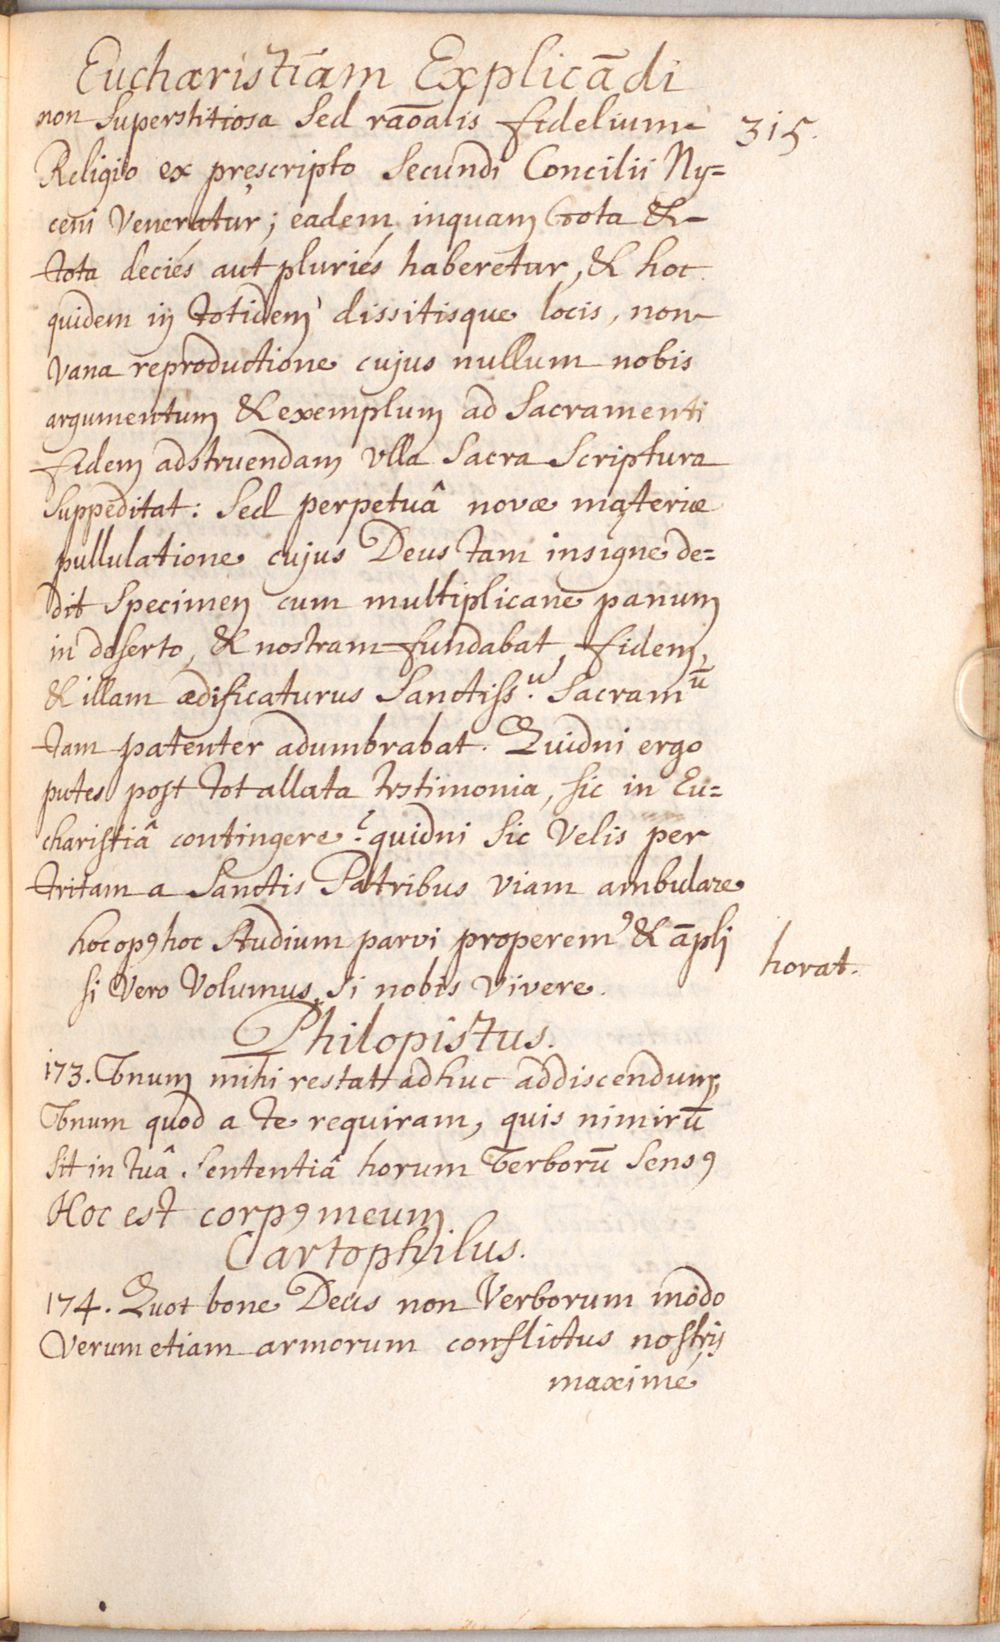 Eucharistiam Explicādi
non Superstitiosa Sed raōalis fidelium
315.
Religio ex pręscripto Secundi Concilii Ny=
ceni Veneratur; eadem inquam tota &
tota deciés aut pluriés haberetur, & hoc
quidem in totidem dissitisque locis, non
vana reproductione cujus nullum nobis
argumentum & exemplum ad Sacramenti
fidem adstruendam Vlla Sacra Scriptura
Suppeditat: Sed perpetuâ novæ materiæ
pullulatione cujus Deus tam insigne de=
dit Specimen cum multiplicane panum
in deserto, & nostram fundabat fidem,
& illam ædificaturus Sanctiss.ū Sacramū
tam patenter adumbrabat. Quidni ergo
putes post tot allata testimonia, sic in Eu=
charistiâ contingere? quidni Sic Velis per
tritam a Sanctis Patribus viam ambulare
hoc opꝰ hoc Studium parvi properemꝰ & āpli
horat.
si Vero Volumus, Si nobis vivere.
Philopistus.
173. Vnum mihi restat adhuc addiscendum,
Vnum quod a te requiram, quis nimirū
Sit in tuâ Sententiâ horum Verborū Sensꝰ
Hoc est corpꝰ meum
Cartophilus.
174. Quot bone Deus non Verborum modo
Verum etiam armorum conflictus nostris
maximé